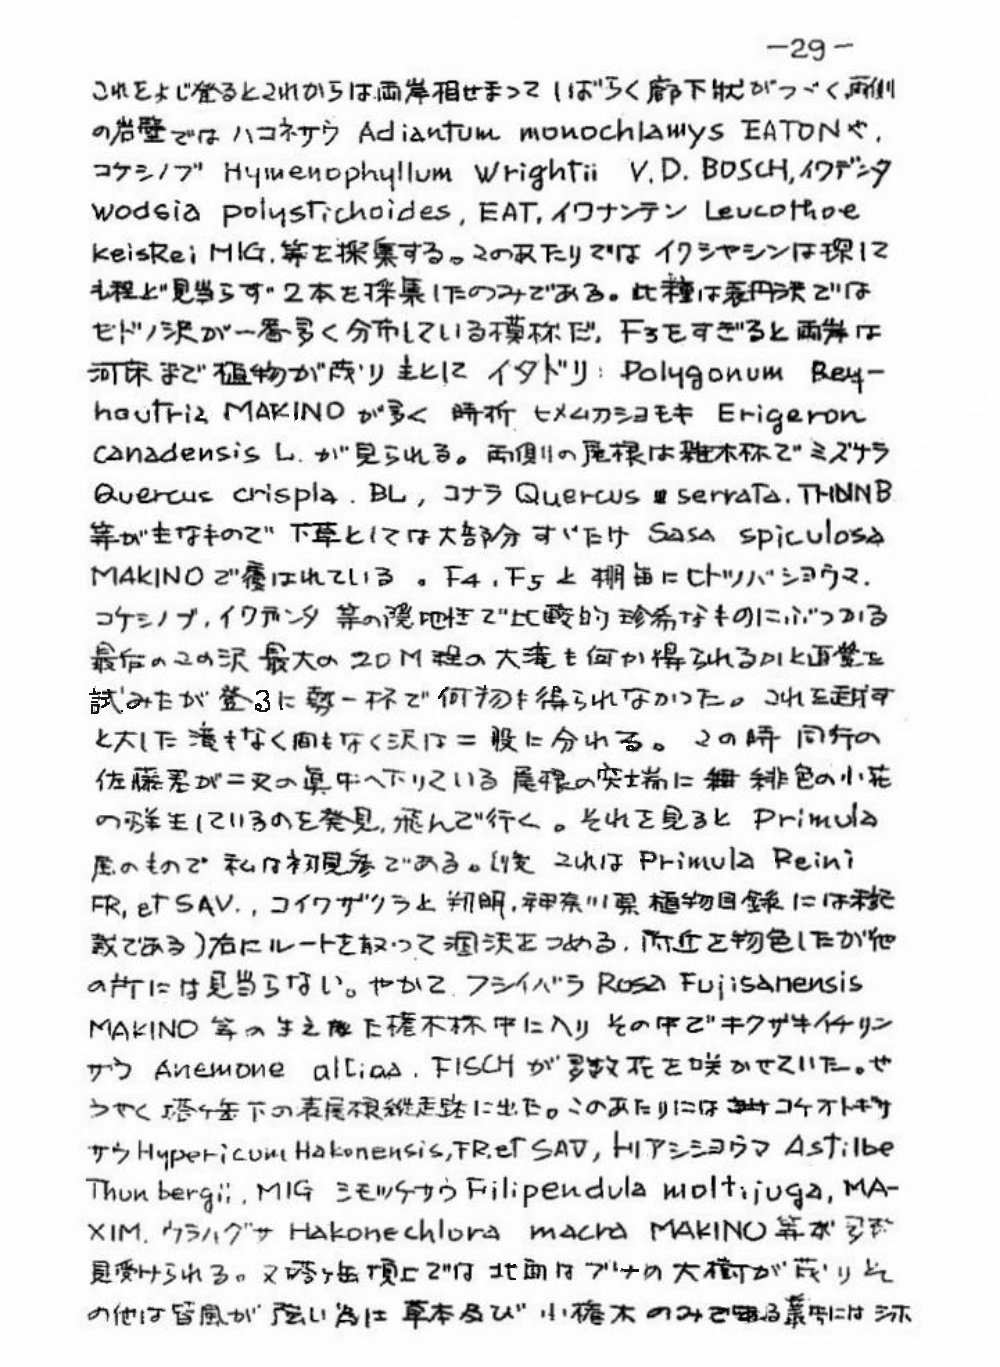 -29-
これをよじ登るとこれからは両岸相せまってしばらく廊下状がつづく両側
の岩壁では ハコネサウ Adiantum monochlamys EATONや,
コケシノブ Hymenophyllum Wrightii V.D. BOSCH,イワデンタ
wodsia polystichoides, EAT, イワナンテン Leucothoe
keiskei MIG. 等を採集する。このあたりでは イワシャシンは探して
も程ど見当らず 2本を採集したのみである。此種は表丹沢では
セドノ沢が一番多く分布している模様だ, F3をすぎると両岸は
河床まで植物が茂り主として イタドリ: Polygonum Rey-
noutria MAKINO が多く 時折 ヒメムカショモギ Erigeron
canadensis L. が見られる。両側の尾根は雑木林でミズナラ
Quercus crispla. BL, コナラ Quercus serrata. THUNB
等が主なもので 下草としては大部分すゞたけ Sasa spiculosa
MAKINOで覆はれている 。F4, F5 と棚毎にヒトツバショウマ.
コケシノブ, イワデンタ 等の陰地性で比較的珍希なものにぶつかる
最后のこの沢 最大の 20M程の大滝も何か得られるかと直登を
試みたが登るに勢一杯で何物も得られなかった。これを越す
と大した滝もなく間もなく沢は二股に分れる。この時 同行の
佐藤君が二又の真中へ下りている尾根の突端に 緋色の小花
の群生しているのを発見,飛んで行く。それを見ると Primula
属のもので 私は初見参である。(後 これは Primula Reini
FR, et SAV., コイワザクラと判明,神奈川県植物目録には稀
散である)右にルートを取って涸沢をつめる, 附近を物色したが他
の所には見当らない。やがて フシイバラ Rosa Fujisanensis
MAKINO 等の生え 灌木林中に入り その中でキクザキイチリン
サウ Anemone altica. FISCH が多数花を咲かせていた。や
うやく塔ヶ岳下の表尾根縦走路に出た。このあたりには コケオトギリ
サウ Hypericum Hakonensis, FR.et SAV, トリアシショウマ Astilbe
Thunbergii, MIG シモツケサウ Filipendula moltijuga, MA-
XIM. ウラハグサ Hakonechlora macra MAKINO 等が多数
見受けられる。又塔ヶ岳頂上では 北面は ブナの大樹が茂りそ
の他は皆風が強い為に草本及び小灌木のみで 叢中には シホ